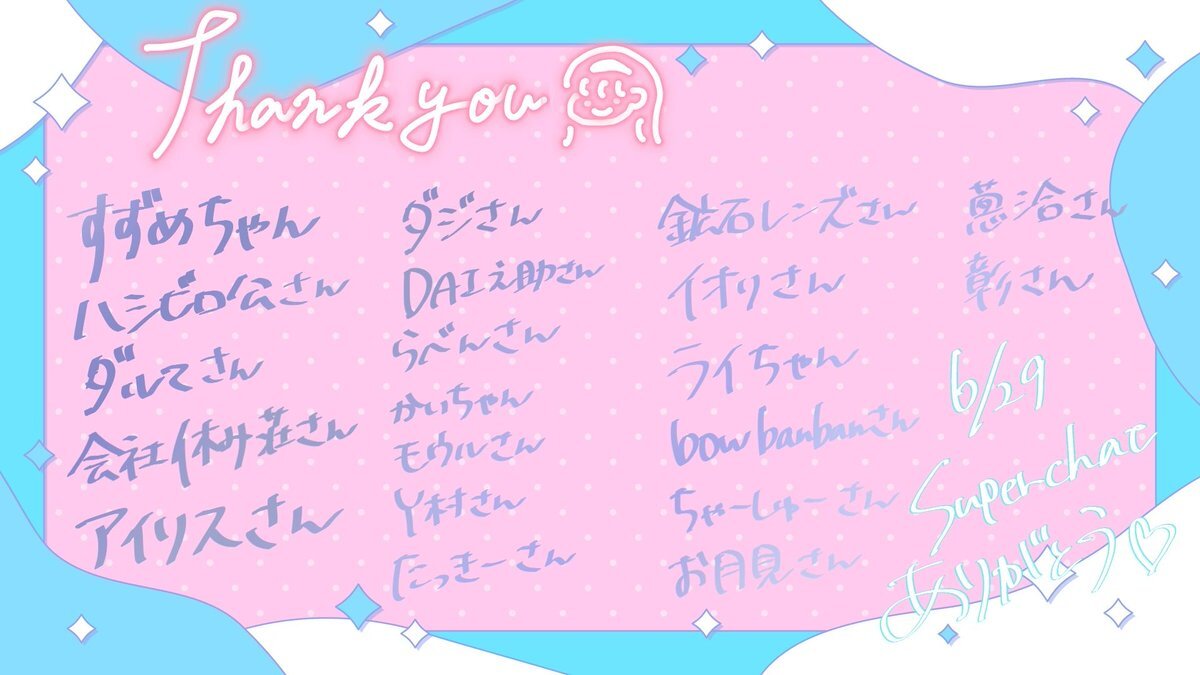 Thank you
すずめちゃん
ハシビロ公さん
ダルマさん
会社休み荘さん
アイリスさん
ダジさん
DAI之助さん
らべんさん
かいちゃん
モウルさん
Y村さん
たっきーさん
鉱石レンズさん
イオリさん
ライちゃん
bowbanbanさん
ちゃーしゅーさん
お月見さん
葱洽さん
彰さん
6/29
Superchat
ありがとう♡